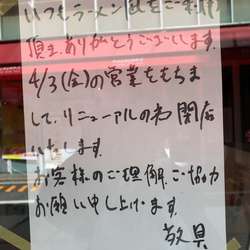 いつもラーメン
頂き、ありがとうございます。
4/3(金)の営業をもちま
して、リニューアルの為 閉店
いたします。
お客様のご理解、ご協力
お願い申し上げます。
敬具